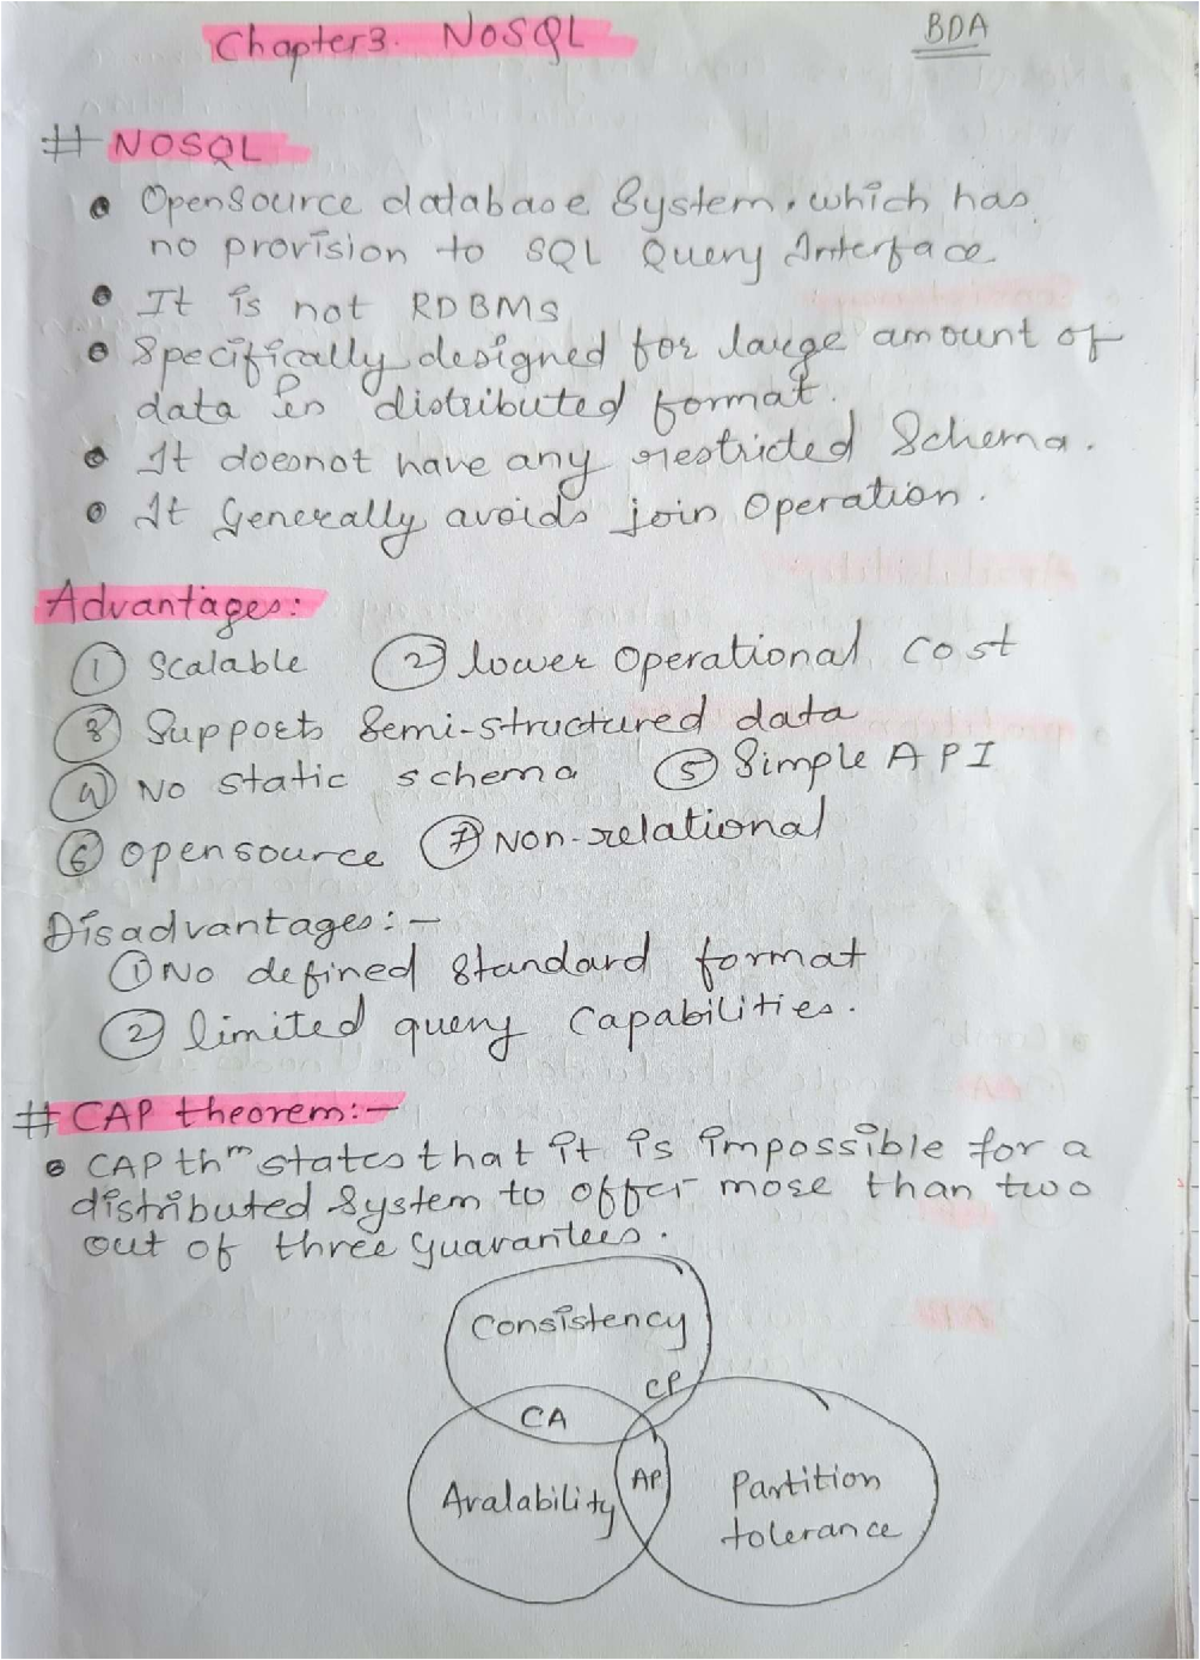 Chapter3. NOSQL
BDA
# NOSQL
• Opensource database System, which has
no provision to SQL Query Interface
• It is not RDBMS
• Specifically designed for large amount of
data in distributed format.
• It doesnot have any restricted Schema.
• It Generally avoids join Operation.
Advantages:
① Scalable ② lower Operational Cost
③ Supports Semi-structured data
④ No static schema ⑤ Simple API
⑥ opensource ⑦ Non-relational
Disadvantages:-
① No defined standard format
② limited query Capabilities.
# CAP theorem:-
• CAP thm states that it is impossible for a
distributed System to offer more than two
out of three guarantees.
Consistency
CP
CA
AP
Avalability
Partition
tolerance